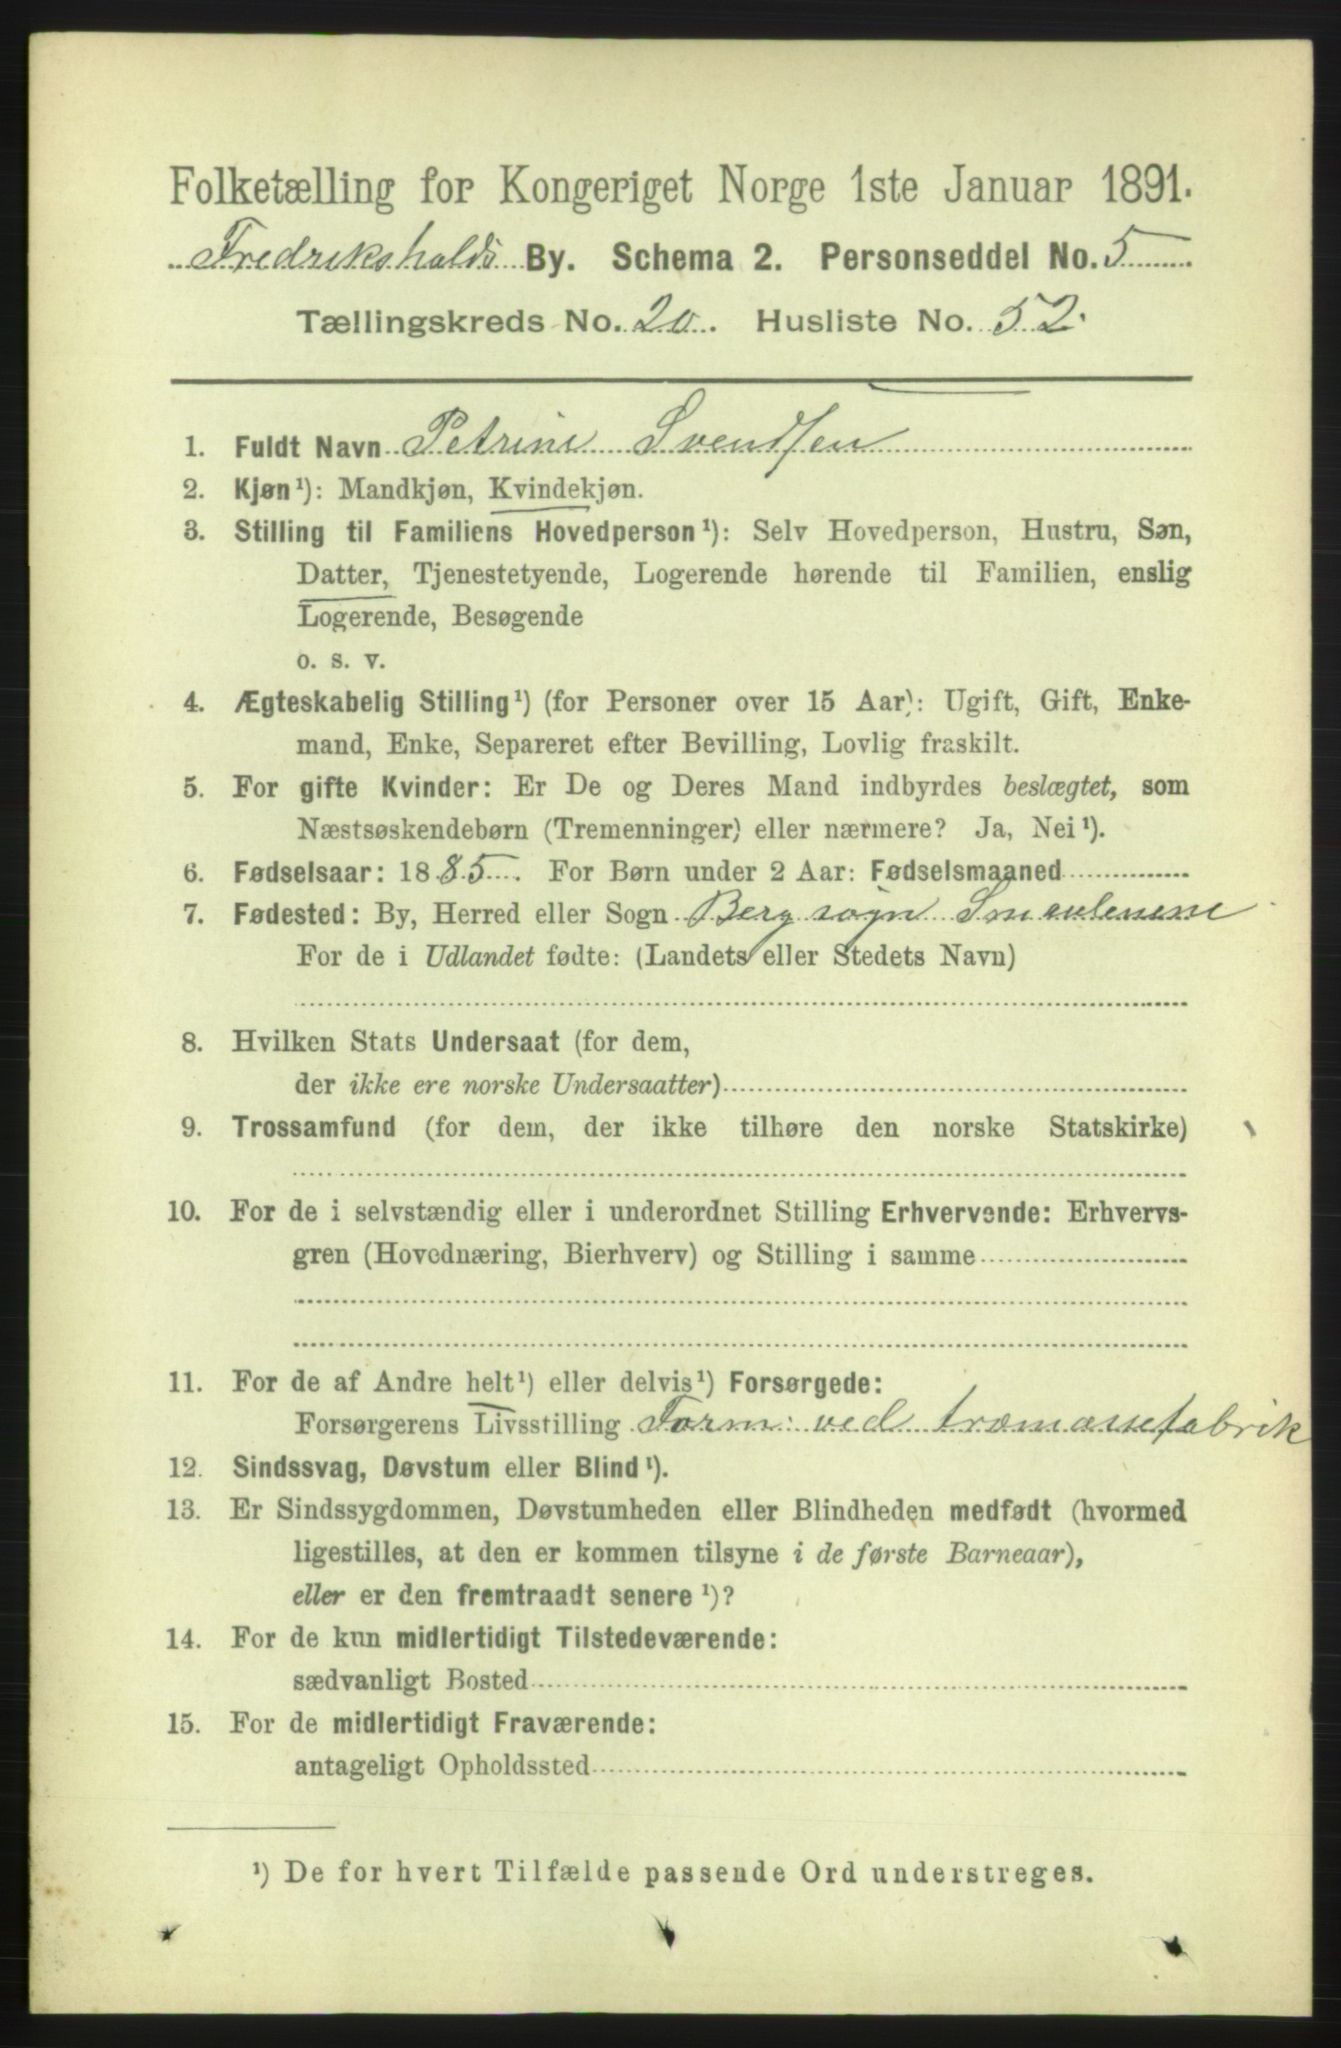 Folketælling for Kongeriget Norge 1ste Januar 1891.
Fredrikshalds By. Schema 2. Personseddel No. 5
Tællingskreds No. 20. Husliste No. 52.
1. Fuldt Navn Petrine Svendsen
2. Kjøn¹): Mandkjøn, Kvindekjøn.
3. Stilling til Familiens Hovedperson¹): Selv Hovedperson, Hustru, Søn,
Datter, Tjenestetyende, Logerende hørende til Familien, enslig
Logerende, Besøgende
o. s. v.
4. Ægteskabelig Stilling¹) (for Personer over 15 Aar): Ugift, Gift, Enke-
mand, Enke, Separeret efter Bevilling, Lovlig fraskilt.
5. For gifte Kvinder: Er De og Deres Mand indbyrdes beslægtet, som
Næstsøskendebørn (Tremenninger) eller nærmere? Ja, Nei¹).
6. Fødselsaar: 1885. For Børn under 2 Aar: Fødselsmaaned
7. Fødested: By, Herred eller Sogn Berg sogn Smaalenene
For de i Udlandet fødte: (Landets eller Stedets Navn)
8. Hvilken Stats Undersaat (for dem,
der ikke ere norske Undersaatter)
9. Trossamfund (for dem, der ikke tilhøre den norske Statskirke)
10. For de i selvstændig eller i underordnet Stilling Erhvervende: Erhvervs-
gren (Hovednæring, Bierhverv) og Stilling i samme
11. For de af Andre helt¹) eller delvis¹) Forsørgede:
Forsørgerens Livsstilling Form: ved træmassefabrik
12. Sindssvag, Døvstum eller Blind¹).
13. Er Sindssygdommen, Døvstumheden eller Blindheden medfødt (hvormed
ligestilles, at den er kommen tilsyne i de første Barneaar),
eller er den fremtraadt senere¹)?
14. For de kun midlertidigt Tilstedeværende:
sædvanligt Bosted
15. For de midlertidigt Fraværende:
antageligt Opholdssted
¹) De for hvert Tilfælde passende Ord understreges.